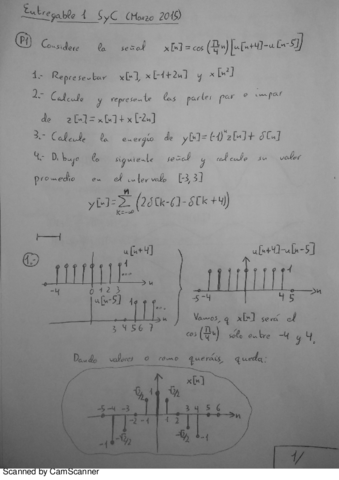 Entregable 1 SyC (Marzo 2015)
P1 Considere la señal x[n]=cos(π/4 n)[u[n+4]-u[n-5]]
1.- Representar x[n], x[-1+2n] y x[n²]
2.- Calcule y represente las partes par e impar
de z[n]=x[n]+x[-2n]
3.- Calcule la energía de y[n]=(-1)ⁿz[n]+δ[n]
4.- Dibuje la siguiente señal y calcule su valor
promedio en el intervalo [-3,3]
y[n]=∑ₖ₌₋∞ⁿ(2δ[k-6]-δ[k+4])
1.-
u[n+4]
1
-4 0 1 2 3 n
u[n-5]
1
3 4 5 6 7 n
u[n+4]-u[n-5]
1
-5 -4 4 5 n
Vemos q x[n] será el
cos(π/4 n) sólo entre -4 y 4.
Dando valores o como queráis, queda:
x[n]
√2/2 1 √2/2
-5 -4 -3 -2 -1 1 2 3 4 5 6 n
-1 -√2/2 -√2/2 -1
1/
Scanned by CamScanner